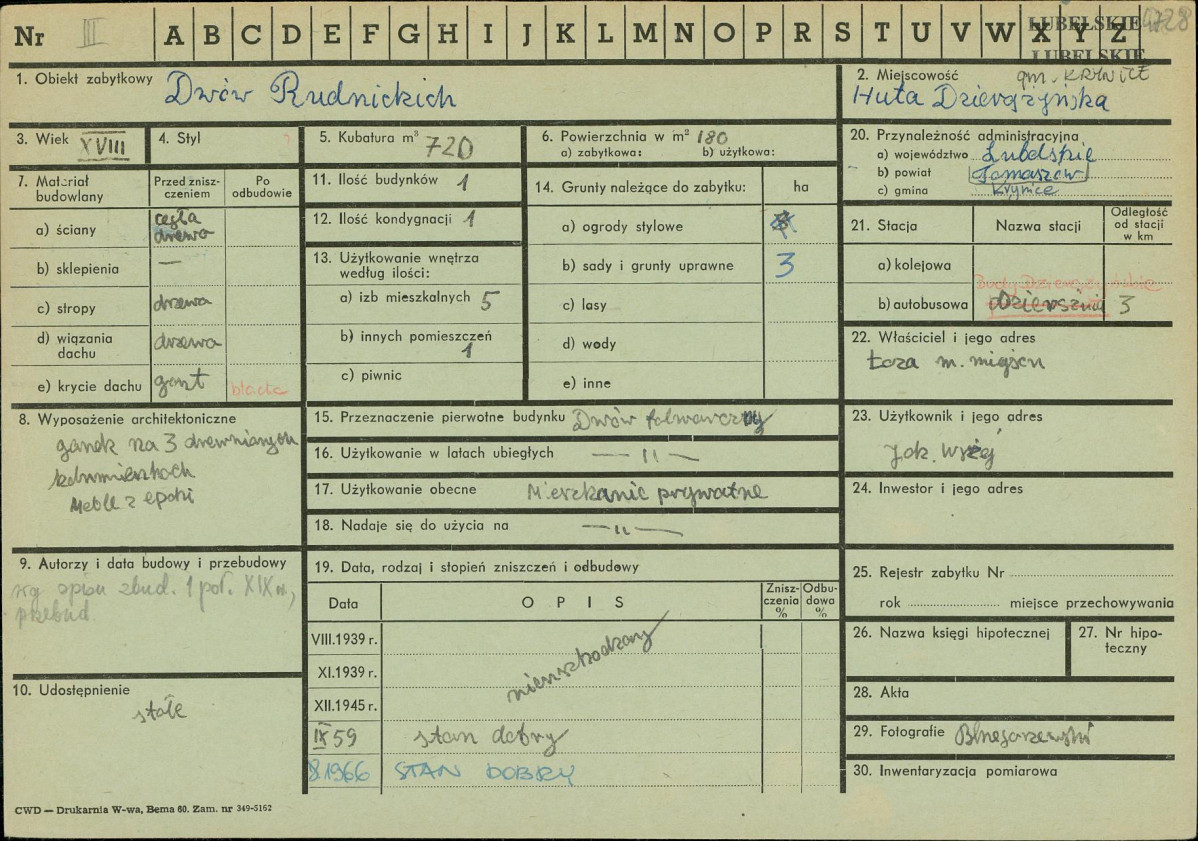 Nr III A B C D E F G H I J K L M N O P R S T U V W X Y Z
LUBELSKIE
LUBELSKIE
1. Obiekt zabytkowy Dwów Rudnickich
2. Miejscowość gm. KRYNICE
Huta Dzierążyńska
3. Wiek XVIII
4. Styl
5. Kubatura m³ 720
6. Powierzchnia w m² 180
a) zabytkowa: b) użytkowa:
20. Przynależność administracyjna
a) województwo Lubelskie
b) powiat Tomaszów
c) gmina Krynice
7. Materiał budowlany
Przed zniszczeniem
Po odbudowie
a) ściany cegła drewa
b) sklepienia —
c) stropy drzewa
d) wiązania dachu drzewa
e) krycie dachu gont blacha
11. Ilość budynków 1
12. Ilość kondygnacji 1
13. Użytkowanie wnętrza według ilości:
a) izb mieszkalnych 5
b) innych pomieszczeń 1
c) piwnic
14. Grunty należące do zabytku: ha
a) ogrody stylowe
b) sady i grunty uprawne 3
c) lasy
d) wody
e) inne
21. Stacja
Nazwa stacji
Odległość od stacji w km
a) kolejowa
b) autobusowa 3
22. Właściciel i jego adres
8. Wyposażenie architektoniczne
ganek na 3 drewnianych
Meble z epoki
15. Przeznaczenie pierwotne budynku Dwów folwarczny
16. Użytkowanie w latach ubiegłych — II —
17. Użytkowanie obecne Mieszkanie prywatne
18. Nadaje się do użycia na — II —
23. Użytkownik i jego adres
Jak wyżej
24. Inwestor i jego adres
9. Autorzy i data budowy i przebudowy
wg opisu zbud. 1 poł. XIX w,
przebud.
19. Data, rodzaj i stopień zniszczeń i odbudowy
Data
OPIS
Zniszczenia %
Odbudowa %
VIII.1939 r.
XI.1939 r.
XII.1945 r.
nieuszkodzony
IX 59 stan dobry
8.1966 STAN DOBRY
25. Rejestr zabytku Nr
rok miejsce przechowywania
26. Nazwa księgi hipotecznej
27. Nr hipoteczny
10. Udostępnienie
stałe
28. Akta
29. Fotografie
30. Inwentaryzacja pomiarowa
CWD — Drukarnia W-wa, Bema 60. Zam. nr 349-5162